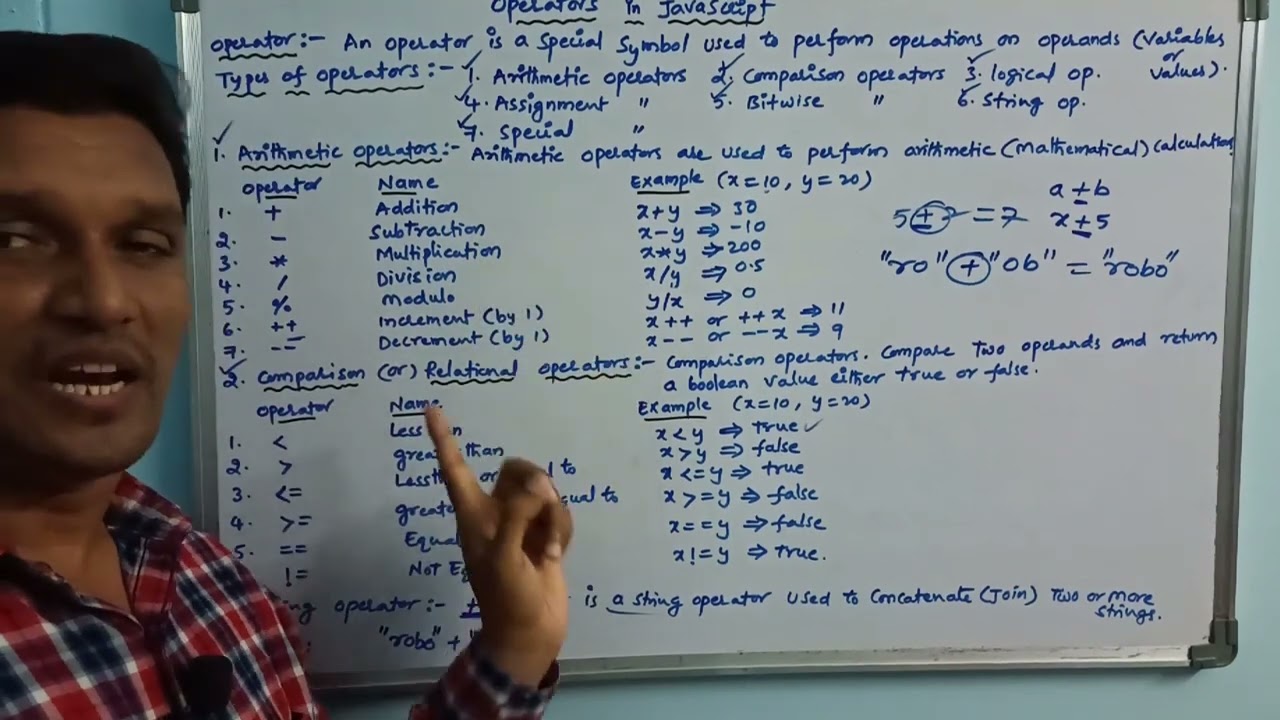 Operators in JavaScript
operator:- An operator is a special symbol used to perform operations on operands (variables or values).
Types of operators:- 1. Arithmetic operators 2. Comparison operators 3. logical op.
4. Assignment " 5. Bitwise " 6. String op.
7. Special "
1. Arithmetic operators:- Arithmetic operators are used to perform arithmetic (mathematical) calculations
operator Name Example (x=10, y=20)
1. + Addition x+y ⇒ 30
2. - Subtraction x-y ⇒ -10
3. * Multiplication x*y ⇒ 200
4. / Division x/y ⇒ 0.5
5. % modulo y/x ⇒ 0
6. ++ Increment (by 1) x++ or ++x ⇒ 11
7. -- Decrement (by 1) x-- or --x ⇒ 9
a+b
5+2=7 x+5
"ro"+"ob" = "robo"
2. Comparison (or) Relational operators:- Comparison operators. Compare Two operands and return
a boolean value either true or false.
operator Name Example (x=10, y=20)
1. < Less x<y ⇒ true
2. > great than x>y ⇒ false
3. <= Less or to x<=y ⇒ true
4. >= greate equal to x>=y ⇒ false
5. == Equal x==y ⇒ false
!= Not E x!=y ⇒ true.
operator:- is a string operator used to concatenate (Join) Two or more
strings.
"robo" +